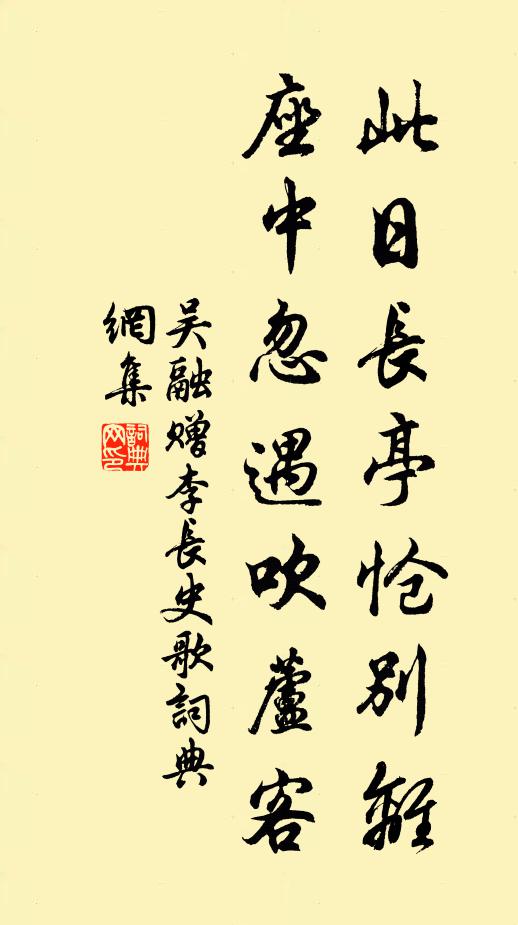 此日長亭愴別離
座中忽遇吹蘆客
吴融贈李長史歌詞典
網集
詞典
网印